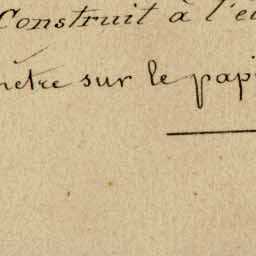 Construit à l'é
mètre sur le pap